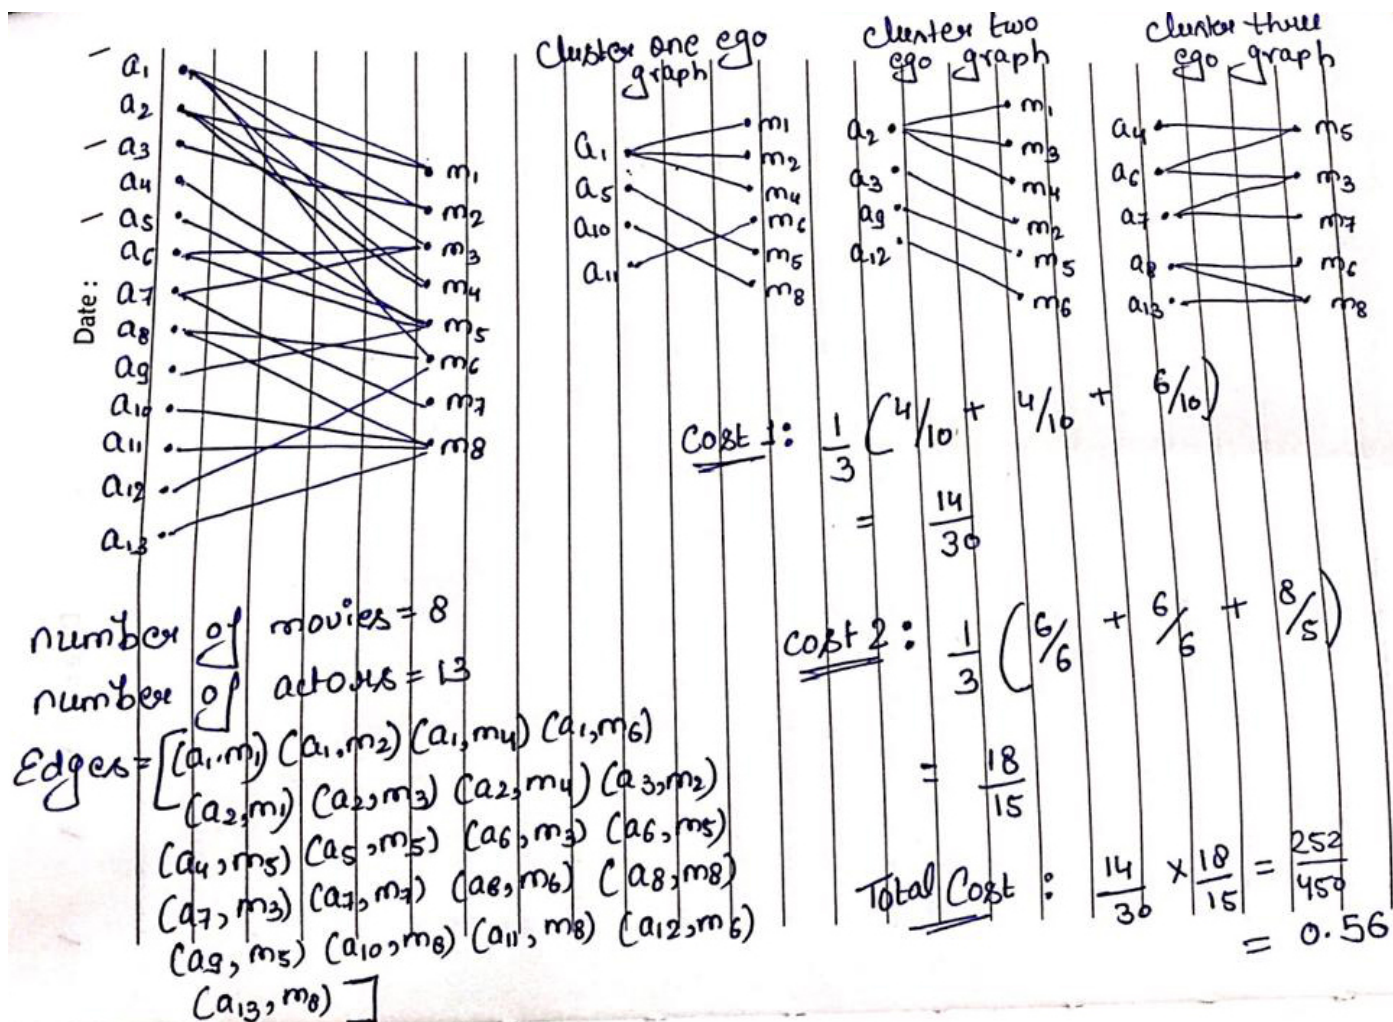 Date:
a1
a2
a3
a4
a5
a6
a7
a8
a9
a10
a11
a12
a13
m1
m2
m3
m4
m5
m6
m7
m8
Cluster one ego
graph
a1
a5
a10
a11
m1
m2
m4
m6
m5
m8
cluster two
ego graph
a2
a3
a9
a12
m1
m3
m4
m2
m5
m6
cluster three
ego graph
a4
a6
a7
a8
a13
m5
m3
m7
m6
m8
Cost 1: 1/3 (4/10 + 4/10 + 6/10)
= 14/30
Cost 2: 1/3 (6/6 + 6/6 + 8/5)
= 18/15
Total Cost: 14/30 × 18/15 = 252/450
= 0.56
number of movies = 8
number of actors = 13
Edges = [(a1,m1) (a1,m2) (a1,m4) (a1,m6)
(a2,m1) (a2,m3) (a2,m4) (a3,m2)
(a4,m5) (a5,m5) (a6,m3) (a6,m5)
(a7,m3) (a7,m7) (a8,m6) (a8,m8)
(a9,m5) (a10,m8) (a11,m8) (a12,m6)
(a13,m8)]